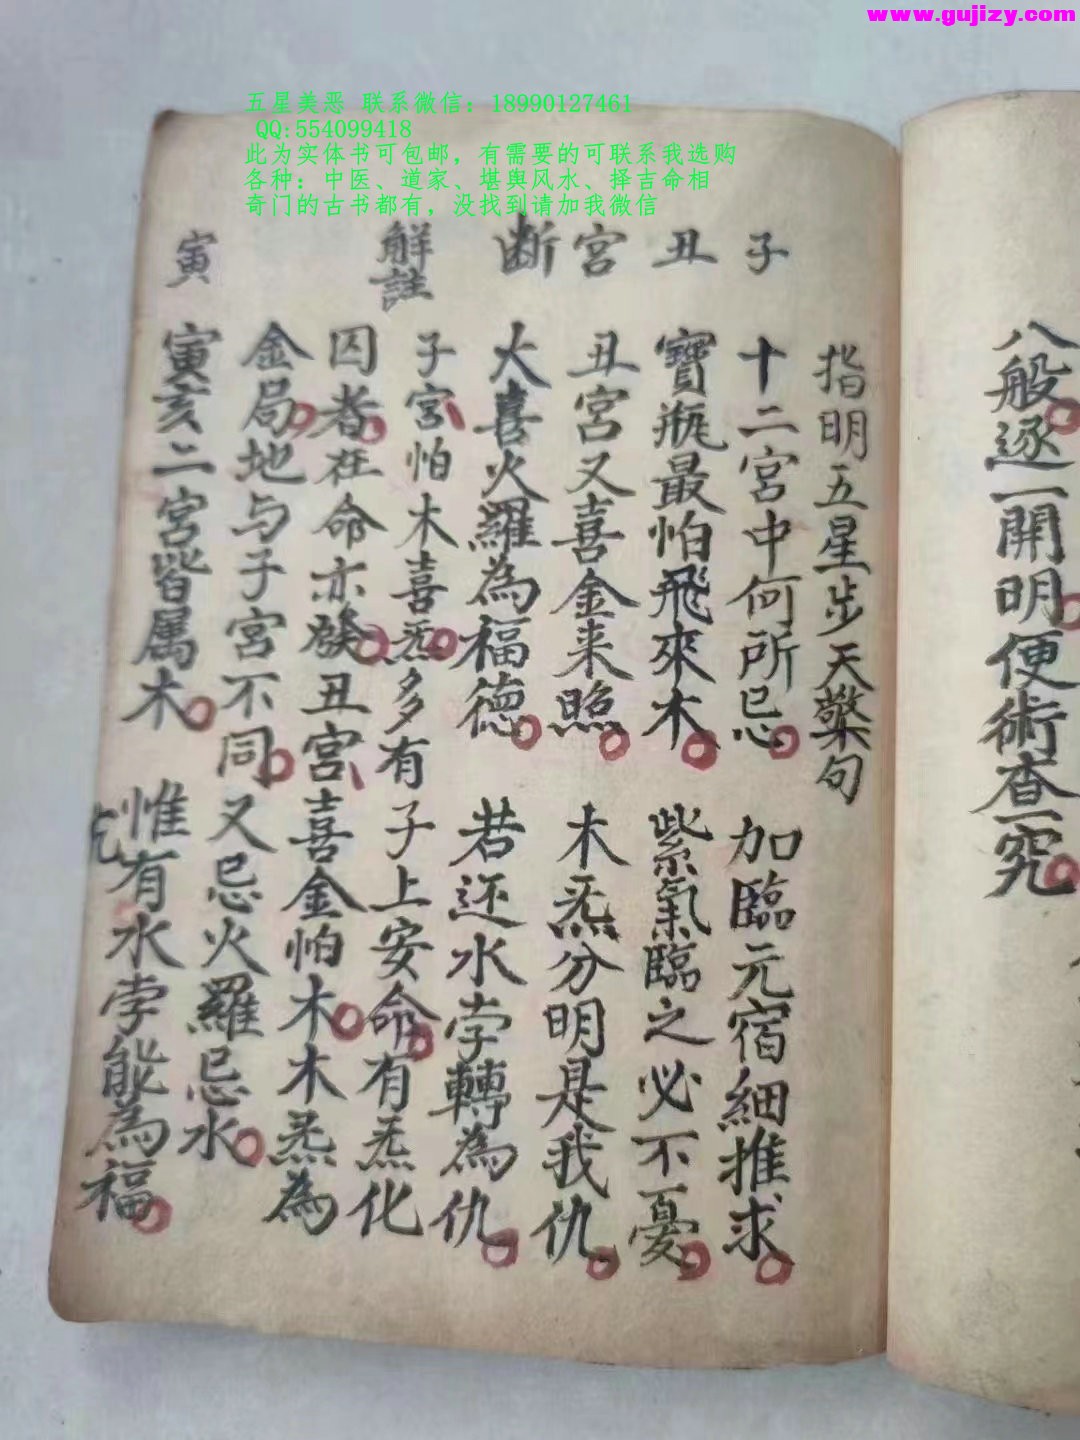 www.gujizy.com
五星美恶 联系微信：18990127461
QQ:554099418
此为实体书可包邮，有需要的可联系我选购
各种：中医、道家、堪舆风水、择吉命相
奇门的古书都有，没找到请加我微信
八般逐一開明便術查究
指明五星步天檠句
子
十二宮中何所忌 加臨元宿細推求
丑
寶瓶最怕飛來木 紫氣臨之必不憂
宮
丑宮又喜金来照 木炁分明是我仇
断
大喜火羅為福德 若还水孛轉為仇
解註
子宮怕木喜炁多有子上安命有炁化
囚者在命亦發丑宮喜金怕木木炁為
金局地与子宮不同又忌火羅忌水
寅
寅亥二宮皆属木 惟有水孛能為福